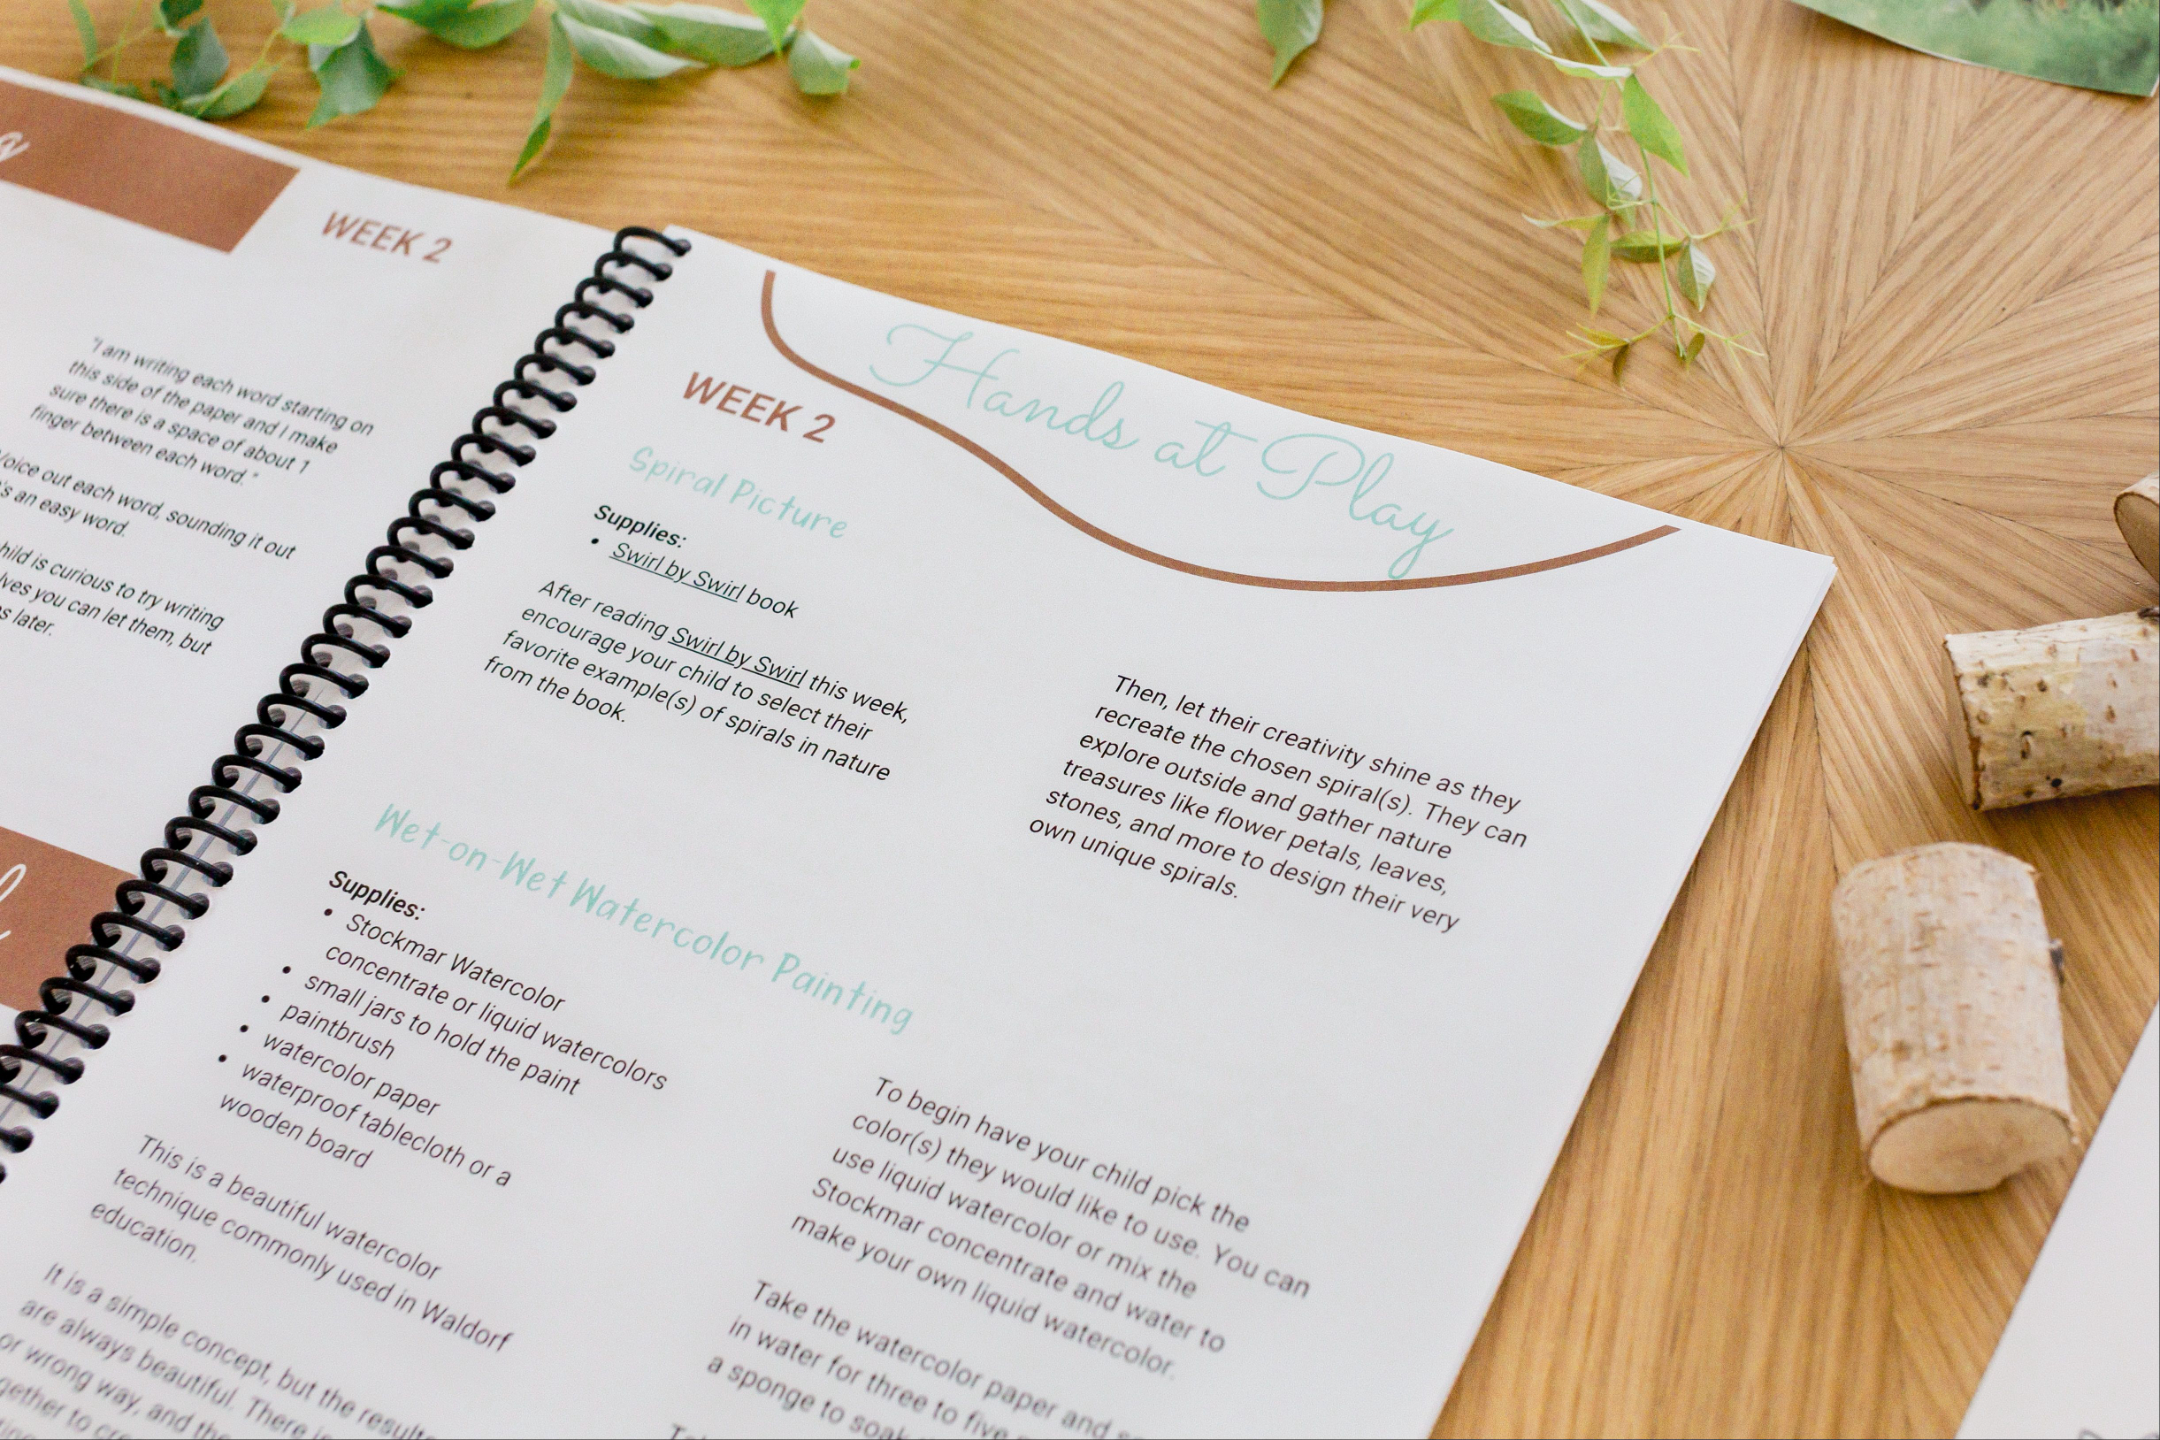 WEEK 2
"I am writing each word starting on
this side of the paper and I make
sure there is a space of about 1
finger between each word."
Voice out each word, sounding it out
an easy word.
child is curious to try writing
you can let them, but
later.
Hands at Play
WEEK 2
Spiral Picture
Supplies:
• Swirl by Swirl book
After reading Swirl by Swirl this week,
encourage your child to select their
favorite example(s) of spirals in nature
from the book.
Then, let their creativity shine as they
recreate the chosen spiral(s). They can
explore outside and gather nature
treasures like flower petals, leaves,
stones, and more to design their very
own unique spirals.
Wet-on-Wet Watercolor Painting
Supplies:
• Stockmar Watercolor
concentrate or liquid watercolors
• small jars to hold the paint
• paintbrush
• watercolor paper
• waterproof tablecloth or a
wooden board
This is a beautiful watercolor
technique commonly used in Waldorf
education.
It is a simple concept, but the results
are always beautiful. There is
or wrong way, and the
To begin have your child pick the
color(s) they would like to use. You can
use liquid watercolor or mix the
Stockmar concentrate and water to
make your own liquid watercolor.
Take the watercolor paper and
in water for three to five
a sponge to soak